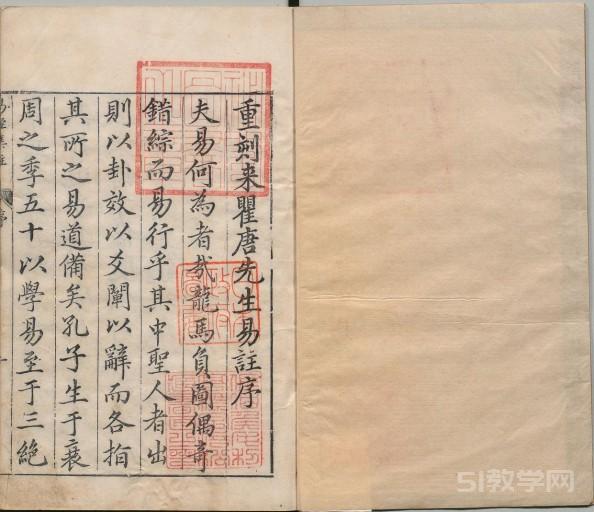 重刻来瞿唐先生易註序
夫易何為者哉龍馬負圖偶竒
錯綜而易行乎其中聖人者出
則以卦效以爻闡以辭而各指
其所之易道備矣孔子生于衰
周之季五十以學易至于三絶
序
51教学网